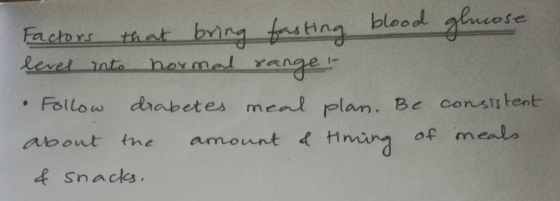 Factors that bring fasting blood glucose
level into normal range :-
• Follow diabetes meal plan. Be consistent
about the amount & timing of meals
& snacks.